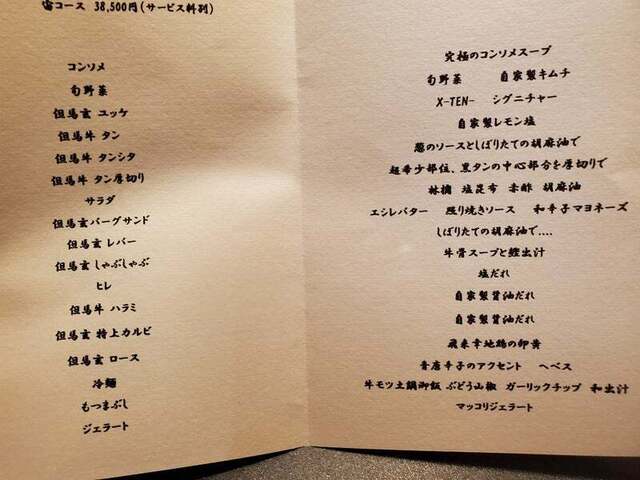 宙コース 38,500円(サービス料別)
コンソメ
旬野菜
但馬玄 ユッケ
但馬牛 タン
但馬牛 タンシタ
但馬牛 タン厚切り
サラダ
但馬玄バーグサンド
但馬玄 レバー
但馬玄 しゃぶしゃぶ
ヒレ
但馬牛 ハラミ
但馬玄 特上カルビ
但馬玄 ロース
冷麺
もつまぶし
ジェラート
究極のコンソメスープ
旬野菜 自家製キムチ
X-TEN- シグニチャー
自家製レモン塩
葱のソースとしぼりたての胡麻油で
超希少部位、黒タンの中心部分を厚切りで
林檎 塩昆布 赤酢 胡麻油
エシレバター 照り焼きソース 和辛子マヨネーズ
しぼりたての胡麻油で....
牛骨スープと鰹出汁
塩だれ
自家製醤油だれ
自家製醤油だれ
飛来幸地鶏の卵黄
青唐辛子のアクセント ヘベス
牛モツ土鍋御飯 ぶどう山椒 ガーリックチップ 和出汁
マッコリジェラート